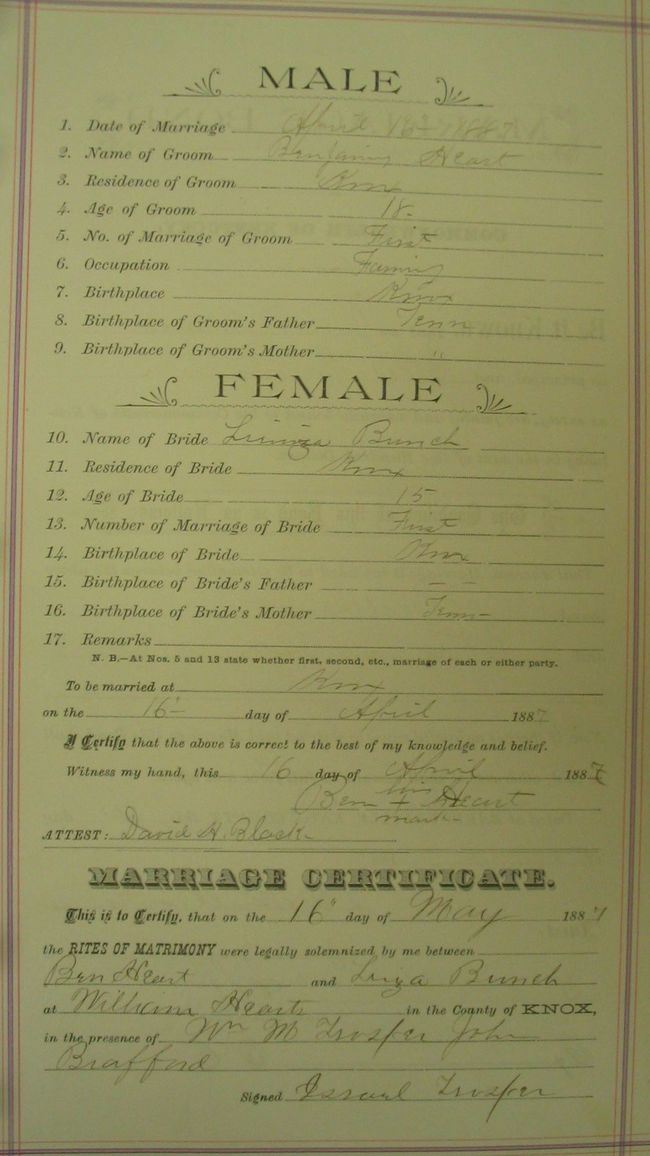 MALE
1. Date of Marriage April 16 1887
2. Name of Groom Benjamin Heart
3. Residence of Groom Knox
4. Age of Groom 18
5. No. of Marriage of Groom First
6. Occupation Farming
7. Birthplace Knox
8. Birthplace of Groom's Father Tenn
9. Birthplace of Groom's Mother "
FEMALE
10. Name of Bride Bunch
11. Residence of Bride Knox
12. Age of Bride 15
13. Number of Marriage of Bride First
14. Birthplace of Bride Knox
15. Birthplace of Bride's Father — —
16. Birthplace of Bride's Mother Tenn
17. Remarks
N. B.—At Nos. 5 and 13 state whether first, second, etc., marriage of each or either party.
To be married at Knox
on the 16 day of April 1887
I Certify that the above is correct to the best of my knowledge and belief.
Witness my hand, this 16 day of April 1887
his
Ben + Heart
mark
ATTEST: David H. Black
MARRIAGE CERTIFICATE.
This is to Certify, that on the 16" day of May 1887
the RITES OF MATRIMONY were legally solemnized by me between
Ben Heart and Liza Bunch
at William Hearts in the County of KNOX,
in the presence of Wm M Trosper John
Brafford
Signed Israel Trosper